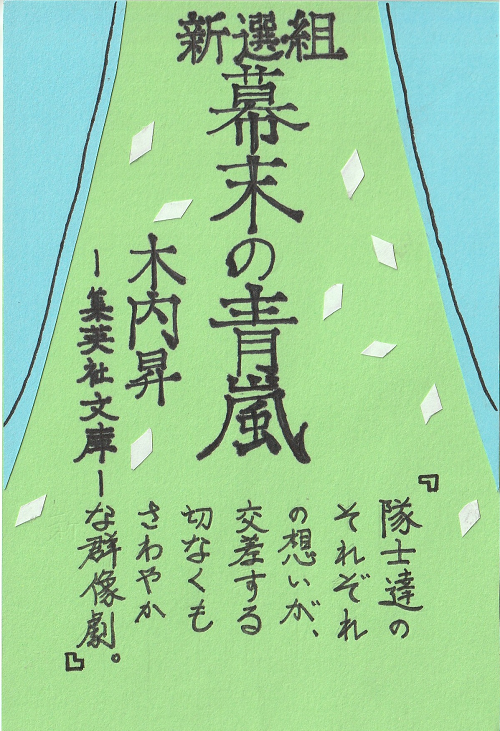 新選組
幕末の青嵐
木内昇
ー集英社文庫ー
『隊士達の
それぞれ
の想いが、
交差する
切なくも
さわやか
な群像劇。』